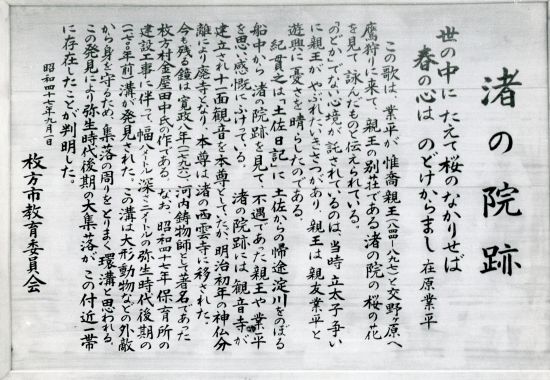 渚の院跡
世の中に たえて桜のなかりせば
春の心は のどけからまし 在原業平
この歌は、業平が 惟喬親王(八四四〜八九七)と交野ヶ原へ
鷹狩りに来て、親王の別荘である渚の院の桜の花
を見て 詠んだものと伝えられている。
「のどか」でない心境が託されているのは、当時 立太子争い
に親王がやぶれたいきさつがあり、親王は 親友業平と
遊興に憂さを晴らしたのである。
紀貫之は「土佐日記」に 土佐からの帰途淀川をのぼる
船中から 渚の院跡を見て、不遇であった親王や業平
を思い感慨にふけている。 渚の院跡には 観音寺が
建立され十一面観音を本尊としていたが明治初年の神仏分
離により廃寺となり、本尊は渚の西雲寺に移された。
今も残る鐘は 寛政八年(一七九六)河内鋳物師として著名であった
枚方村金屋田中氏の作である。なお 昭和四十七年 保育所の
建設工事に伴って、幅八メートル 深三メートルの弥生時代後期の
(一七〇〇年前)溝が発見された。この溝は大形動物などの外敵
から身を守るため、集落の周りをとりまく環溝と思われる。
この発見により弥生時代後期の大集落が この付近一帯
に存在したことが判明した。
昭和四十七年九月一日
枚方市教育委員会